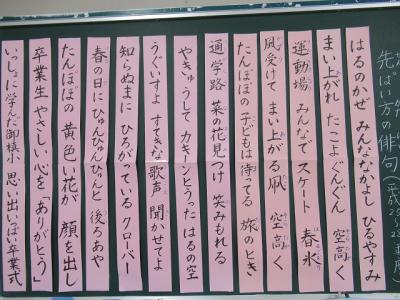 先ぱい方の俳句（平成
はるのかぜ みんななかよし ひるやすみ
まい上がれ たこよ ぐんぐん 空高く
運動場 みんなでスケート 春氷
風受けて まい上がる凧 空高く
たんぽぽの 子どもは待ってる 旅のとき
通学路 菜の花見つけ 笑みもれる
やきゅうして カキーンとうった はるの空
うぐいすよ すてきな歌声 聞かせてよ
知らぬまに ひろがっている クローバー
春の日に ひゅんひゅんひゅんと 後ろあや
たんぽぽの 黄色い花が 顔を出し
卒業生 やさしい心を 「ありがとう」
いっしょに学んだ御槙小 思い出いっぱい卒業式